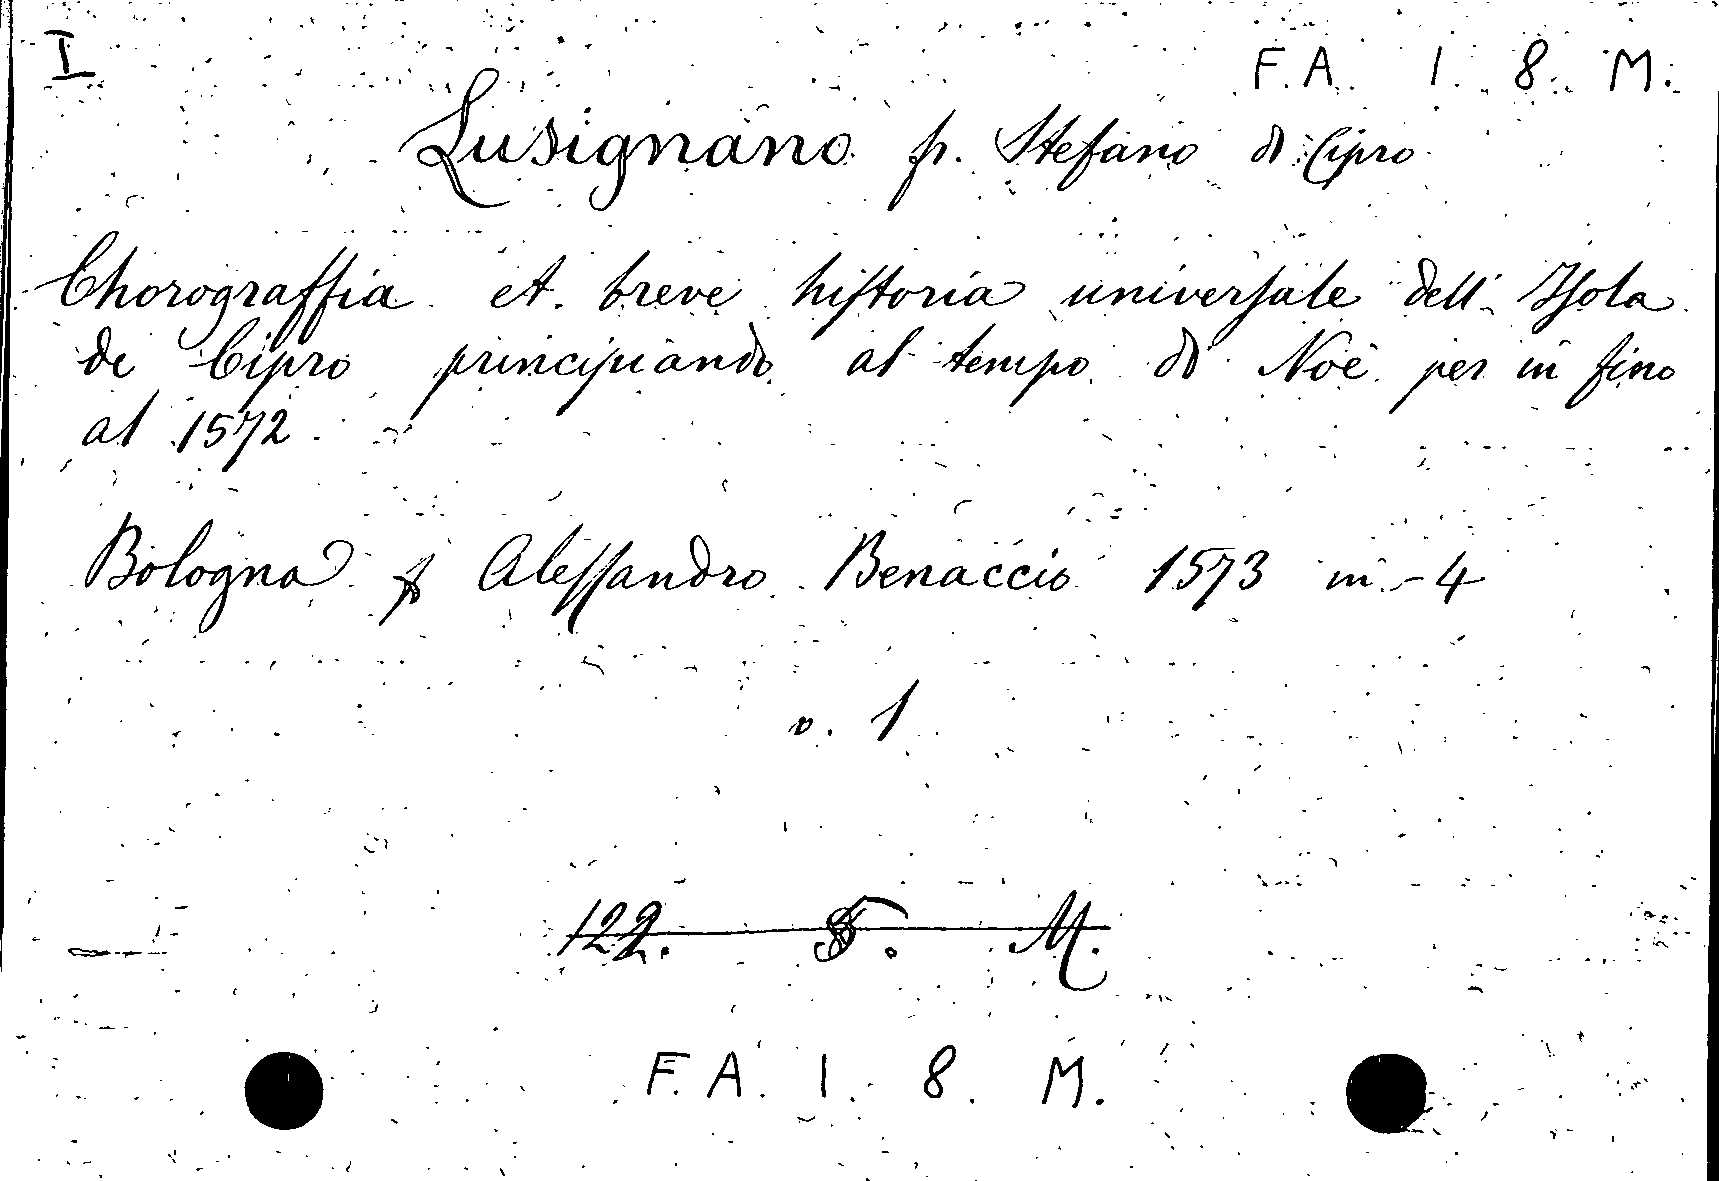 I
F. A. 1. 8. M.
Lusignano fr. Stefano di Cipro
Chorograffia et breve historia universale dell' Isola
de Cipro principiando al tempo di Noè per in fino
al 1572.
Bologna Alessandro Benaccio 1573 in-4
v. 1
122. M.
F. A. 1. 8. M.